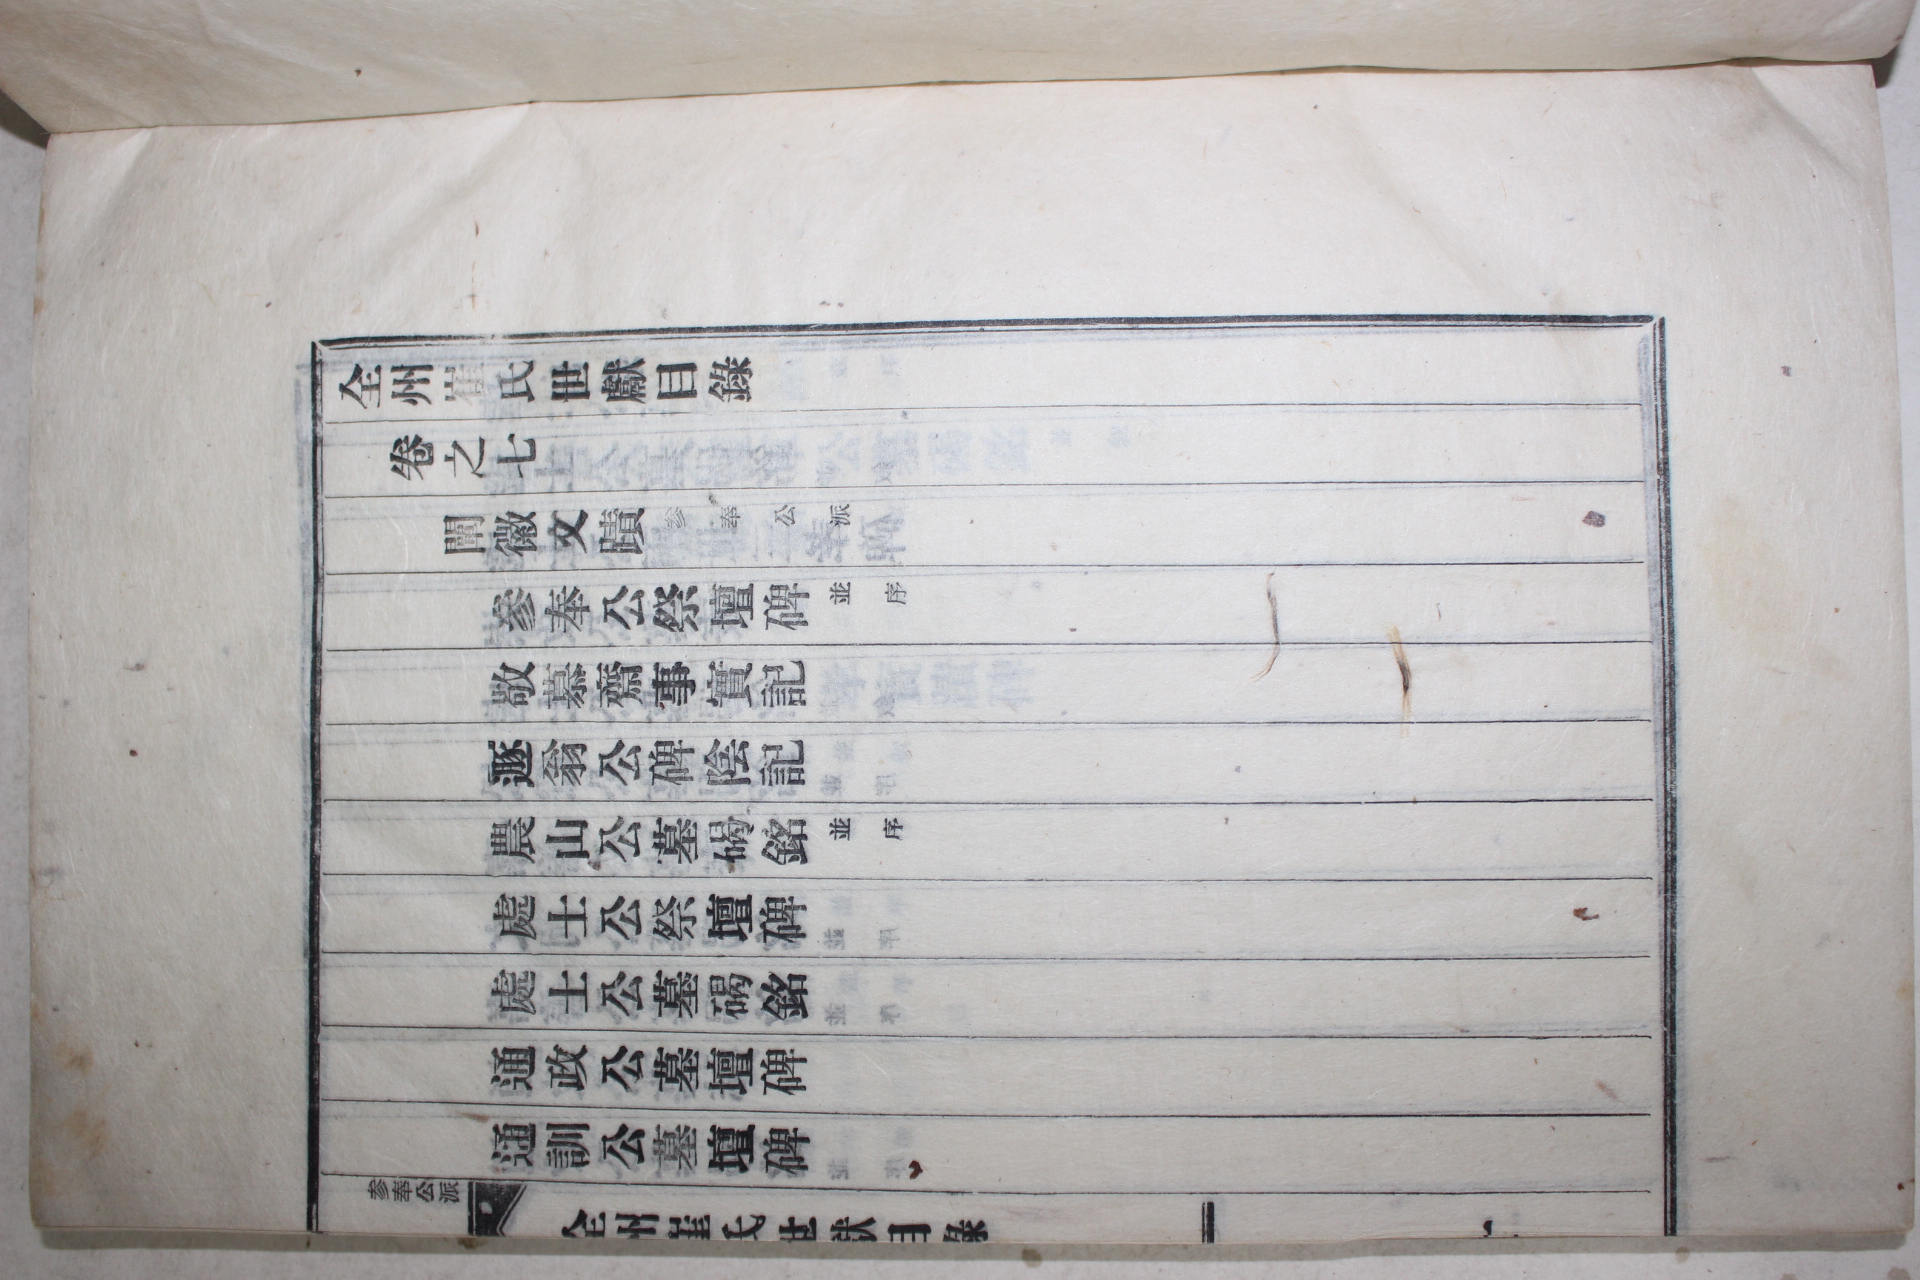 全州崔氏世獻目錄
卷之七
闡徽文蹟 參奉公派
參奉公祭壇碑 並序
敬慕齋事實記
遯翁公碑陰記
農山公墓碣銘 並序
處士公祭壇碑
處士公墓碣銘
通政公墓壇碑
通訓公墓壇碑
參奉公派
全州崔氏世獻目錄